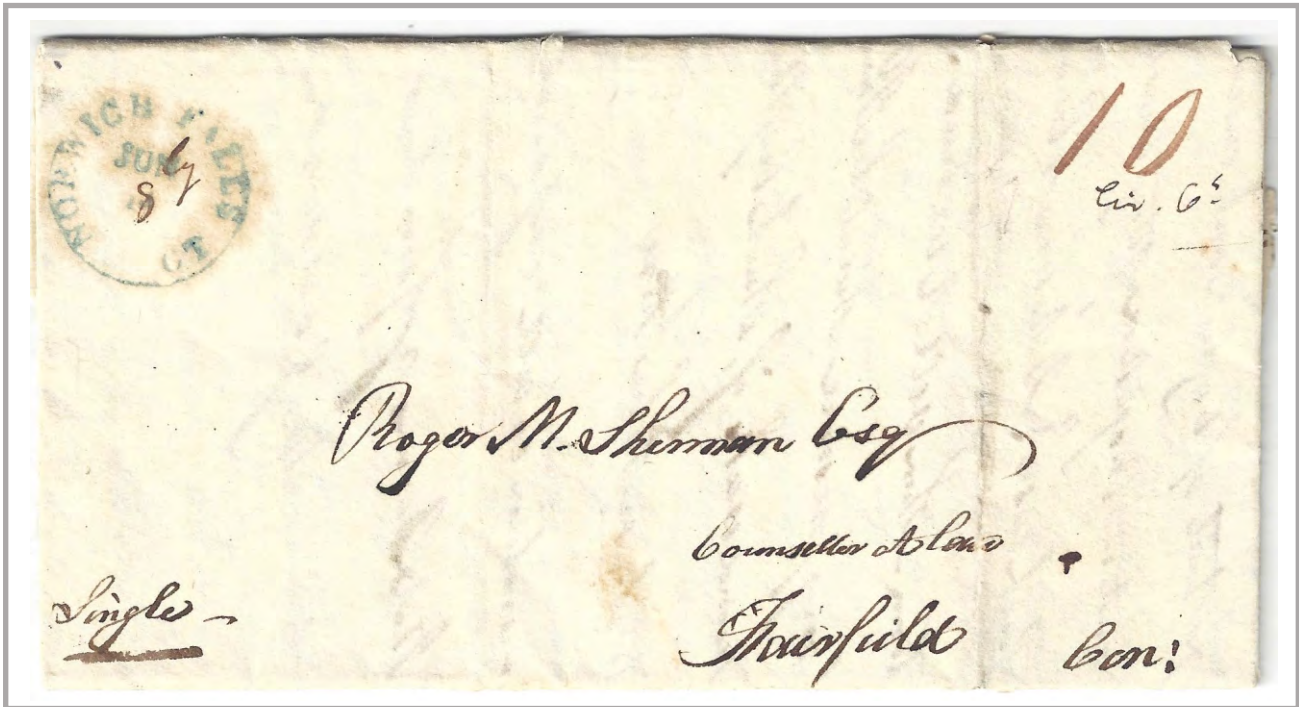 NORWICH FALLS CT
JUN
ly
8
10
Roger M. Sherman Esq
Counseller At Law
Fairfield Con:
Single